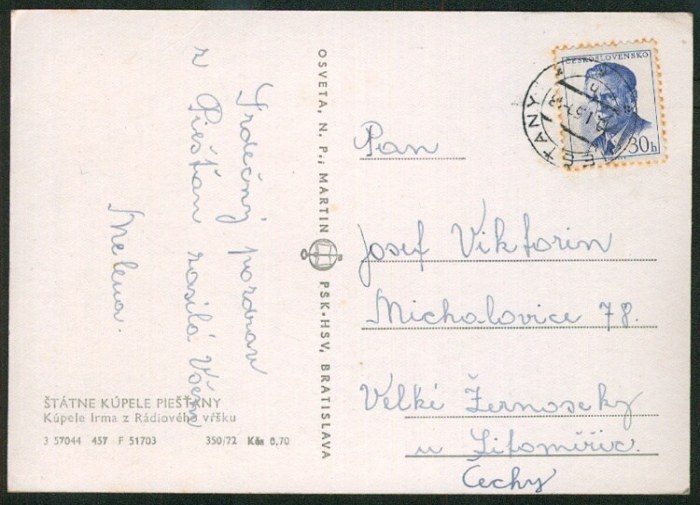 Srdečný pozdrav
z Piešťan zasílá Všem
Melena.
ŠTÁTNE KÚPELE PIEŠŤANY
Kúpele Irma z Rádiového vŕšku
3 57044 457 F 51703 350/72 Kčs 0,70
OSVETA, N. P., MARTIN PSK-HSV, BRATISLAVA
ČESKOSLOVENSKO
30h
Pan
Josef Viktorin
Michalovice 78.
Velké Žernoseky
u Litoměřic.
Čechy